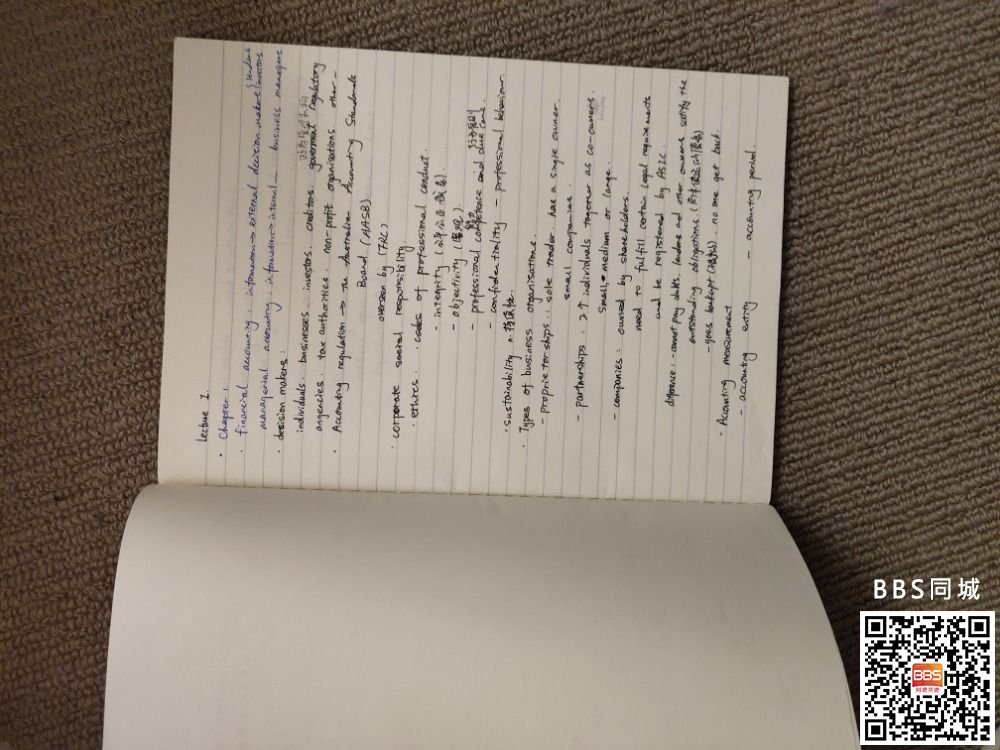 Lecture 1.
· Chapter 1.
· financial accounting : information → external decision makers / lenders investors
managerial accounting : information → internal _ business managers
· decision makers :
individuals. businesses. investors. creditors. goverment regulatory
angencies. tax authorities. non-profit organisations. other -
· Accounting regulation → the Australian Accounting Standards
Board (AASB).
overseen by (FRC)
· corporate social responsibility
· ethics. · codes of professional conduct.
- integrity
- objectivity
- professional competence and due care.
- confidentiality - professional behaviour.
· sustainability n. 持续性
· Types of business organisations.
- proprietorships : sole trader. has a single owner.
small companies.
- partnerships : 2↑ individuals together as co-owners.
small, medium or large.
- companies : owned by shareholders.
need to fulfill certain legal requirements
and be registered by ASIC.
difference : - cannot pay debts. lenders and other owners satisfy the
outstanding obligations.
- goes bankrupt. no one get back.
· Accounting measurement
- accounting entity - accounting period.
BBS同城
BBS